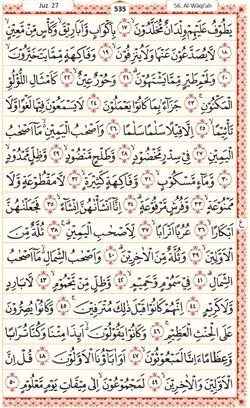 Juz 27 535 56. Al-Wāqi'ah
يَطُوفُ عَلَيْهِمْ وِلْدَانٌ مُّخَلَّدُونَ ١٧ بِأَكْوَابٍ وَأَبَارِيقَ وَكَأْسٍ مِّن مَّعِينٍ
١٨ لَا يُصَدَّعُونَ عَنْهَا وَلَا يُنزِفُونَ ١٩ وَفَاكِهَةٍ مِّمَّا يَتَخَيَّرُونَ
٢٠ وَلَحْمِ طَيْرٍ مِّمَّا يَشْتَهُونَ ٢١ وَحُورٌ عِينٌ ٢٢ كَأَمْثَالِ اللُّؤْلُؤِ
الْمَكْنُونِ ٢٣ جَزَاءً بِمَا كَانُوا يَعْمَلُونَ ٢٤ لَا يَسْمَعُونَ فِيهَا لَغْوًا وَلَا
تَأْثِيمًا ٢٥ إِلَّا قِيلًا سَلَامًا سَلَامًا ٢٦ وَأَصْحَابُ الْيَمِينِ مَا أَصْحَابُ
الْيَمِينِ ٢٧ فِي سِدْرٍ مَّخْضُودٍ ٢٨ وَطَلْحٍ مَّنضُودٍ ٢٩ وَظِلٍّ مَّمْدُودٍ
٣٠ وَمَاءٍ مَّسْكُوبٍ ٣١ وَفَاكِهَةٍ كَثِيرَةٍ ٣٢ لَّا مَقْطُوعَةٍ وَلَا
مَمْنُوعَةٍ ٣٣ وَفُرُشٍ مَّرْفُوعَةٍ ٣٤ إِنَّا أَنشَأْنَاهُنَّ إِنشَاءً ٣٥ فَجَعَلْنَاهُنَّ
أَبْكَارًا ٣٦ عُرُبًا أَتْرَابًا ٣٧ لِّأَصْحَابِ الْيَمِينِ ٣٨ ثُلَّةٌ مِّنَ
الْأَوَّلِينَ ٣٩ وَثُلَّةٌ مِّنَ الْآخِرِينَ ٤٠ وَأَصْحَابُ الشِّمَالِ مَا أَصْحَابُ
الشِّمَالِ ٤١ فِي سَمُومٍ وَحَمِيمٍ ٤٢ وَظِلٍّ مِّن يَحْمُومٍ ٤٣ لَّا بَارِدٍ
وَلَا كَرِيمٍ ٤٤ إِنَّهُمْ كَانُوا قَبْلَ ذَٰلِكَ مُتْرَفِينَ ٤٥ وَكَانُوا يُصِرُّونَ
عَلَى الْحِنثِ الْعَظِيمِ ٤٦ وَكَانُوا يَقُولُونَ أَئِذَا مِتْنَا وَكُنَّا تُرَابًا
وَعِظَامًا أَإِنَّا لَمَبْعُوثُونَ ٤٧ أَوَآبَاؤُنَا الْأَوَّلُونَ ٤٨ قُلْ إِنَّ
الْأَوَّلِينَ وَالْآخِرِينَ ٤٩ لَمَجْمُوعُونَ إِلَىٰ مِيقَاتِ يَوْمٍ مَّعْلُومٍ ٥٠